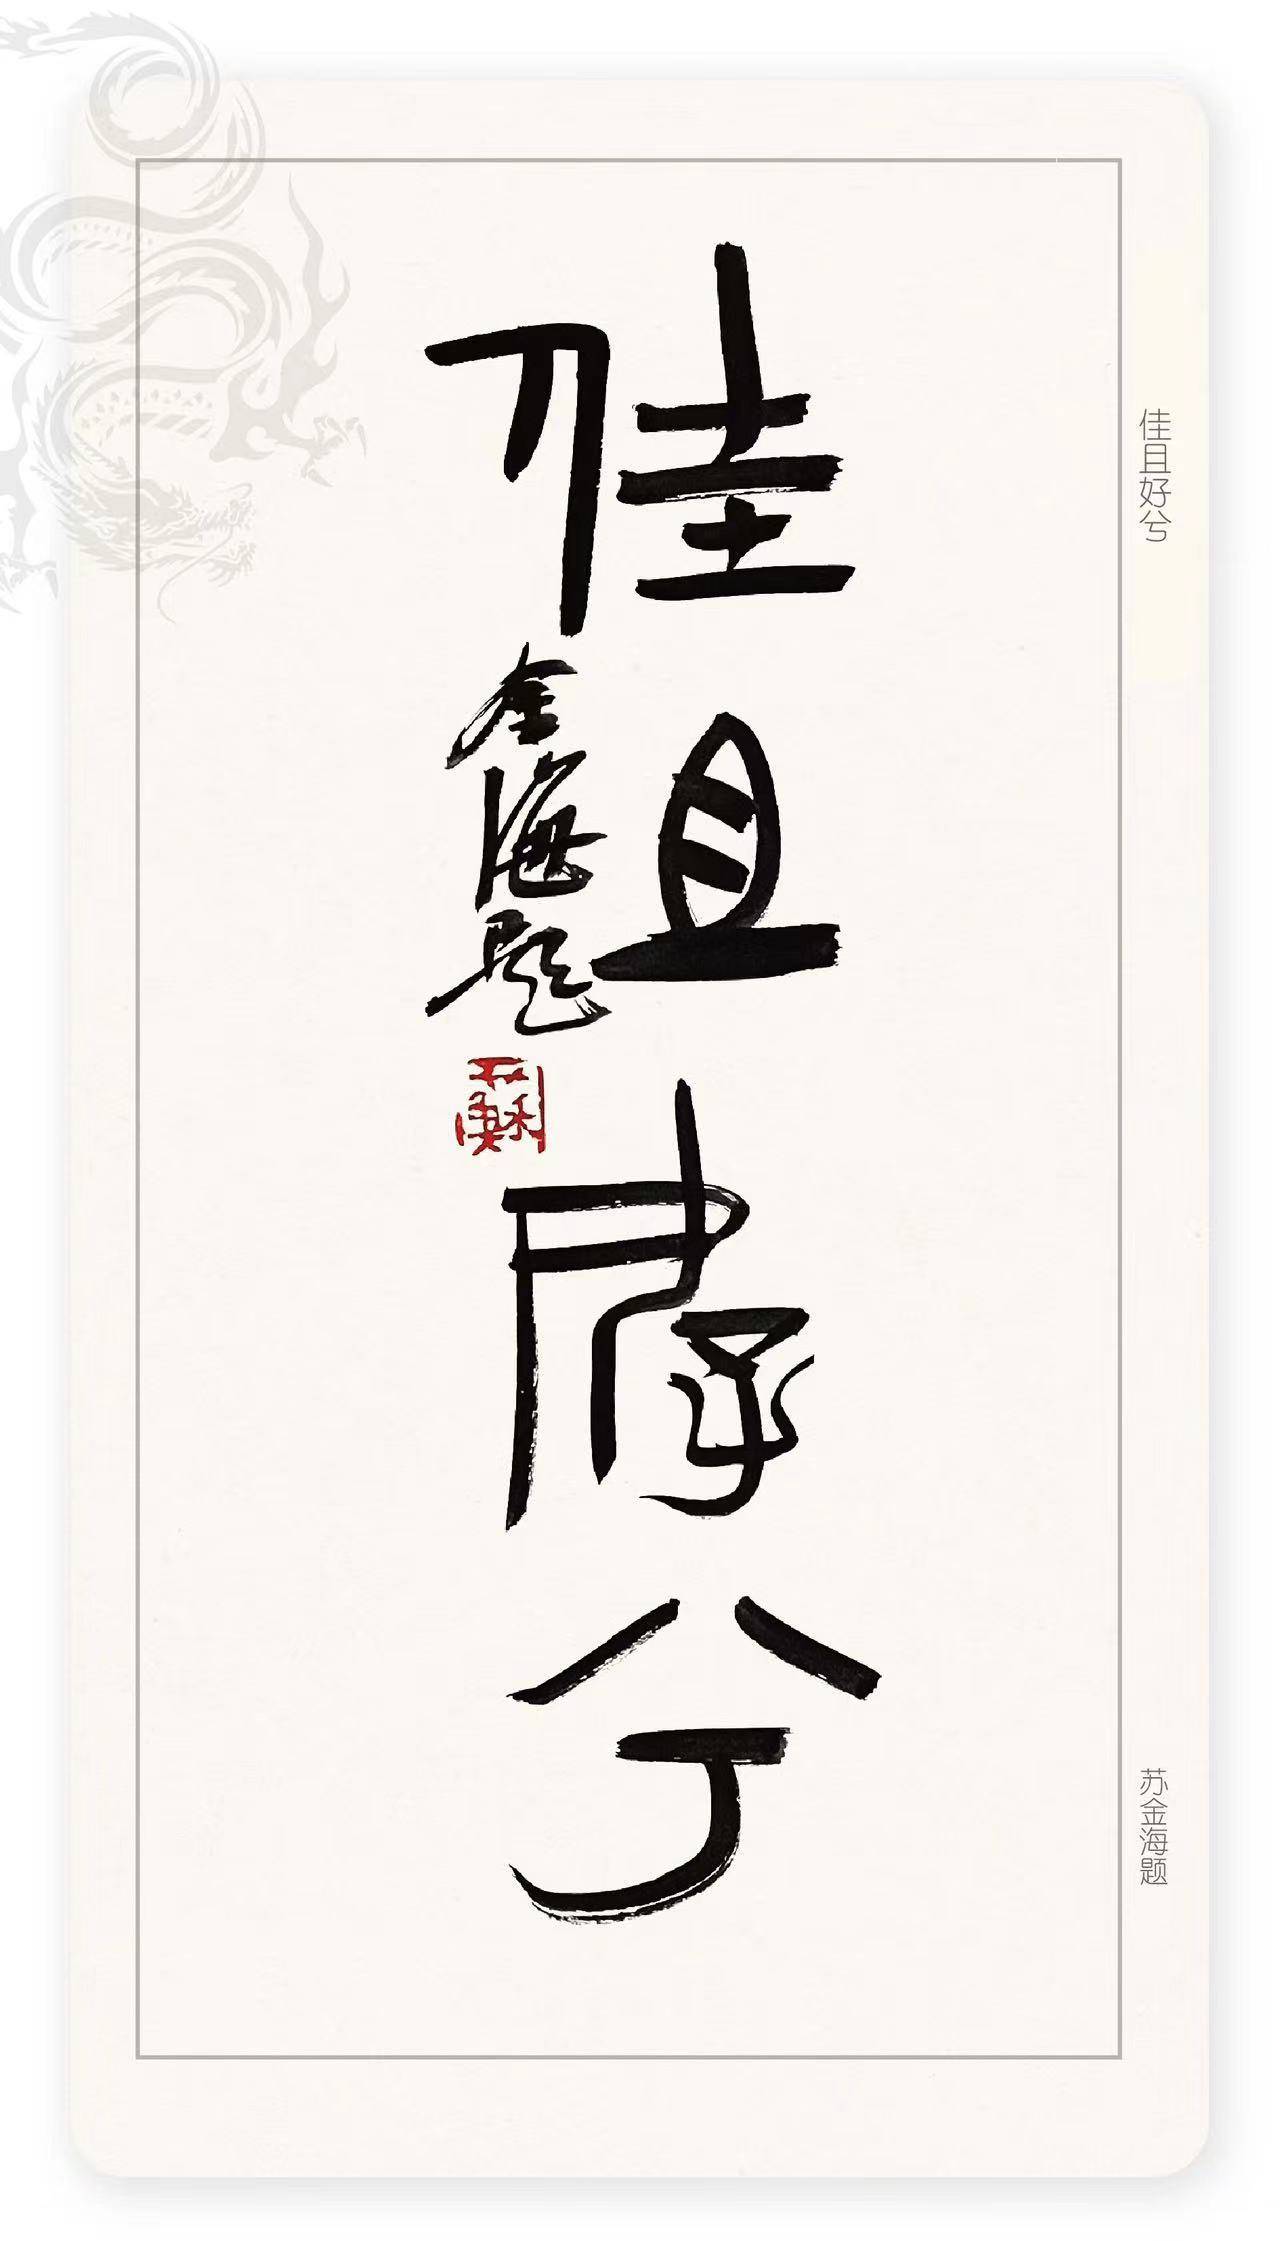 佳且好兮
金海题
佳且好兮
苏金海题